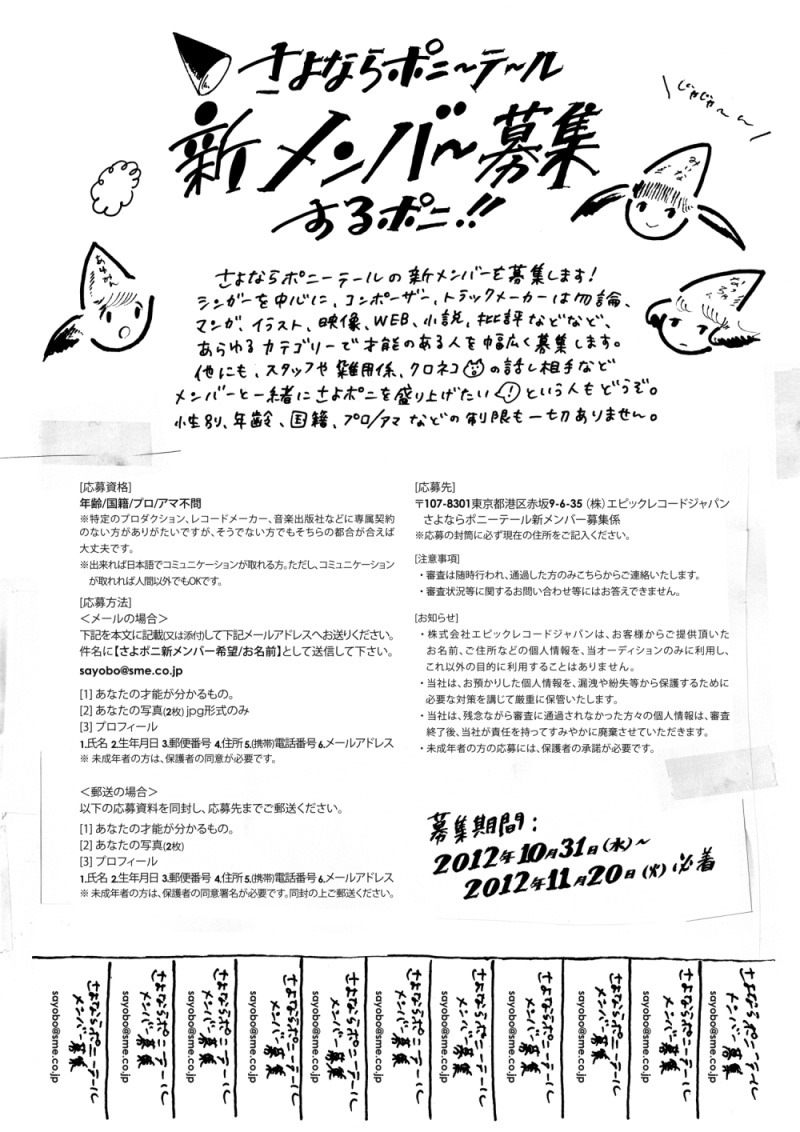 さよならポニ〜テ〜ル
新メンバ〜募集
するポニ!!
じゃじゃ〜ん
みぃな
あゆみん
なっちゃん
さよならポニーテールの新メンバーを募集します!
シンガーを中心に、コンポーザー、トラックメーカーは勿論、
マンガ、イラスト、映像、WEB、小説、批評などなど、
あらゆるカテゴリーで才能のある人を幅広く募集します。
他にも、スタッフや雑用係、クロネコの話し相手など
メンバーと一緒にさよポニを盛り上げたい!という人もどうぞ。
性別、年齢、国籍、プロ/アマなどの制限も一切ありません。
[応募資格]
年齢/国籍/プロ/アマ不問
※特定のプロダクション、レコードメーカー、音楽出版社などに専属契約
のない方がありがたいですが、そうでない方でもそちらの都合が合えば
大丈夫です。
※出来れば日本語でコミュニケーションが取れる方。ただし、コミュニケーション
が取れれば人間以外でもOKです。
[応募方法]
<メールの場合>
下記を本文に記載(又は添付)して下記メールアドレスへお送りください。
件名に【さよポニ新メンバー希望/お名前】として送信して下さい。
sayobo@sme.co.jp
[1] あなたの才能が分かるもの。
[2] あなたの写真(2枚) jpg形式のみ
[3] プロフィール
1.氏名 2.生年月日 3.郵便番号 4.住所 5.(携帯)電話番号 6.メールアドレス
※ 未成年者の方は、保護者の同意が必要です。
<郵送の場合>
以下の応募資料を同封し、応募先までご郵送ください。
[1] あなたの才能が分かるもの。
[2] あなたの写真(2枚)
[3] プロフィール
1.氏名 2.生年月日 3.郵便番号 4.住所 5.(携帯)電話番号 6.メールアドレス
※ 未成年者の方は、保護者の同意署名が必要です。同封の上ご郵送ください。
[応募先]
〒107-8301東京都港区赤坂9-6-35 (株)エピックレコードジャパン
さよならポニーテール新メンバー募集係
※応募の封筒に必ず現在の住所をご記入ください。
[注意事項]
・審査は随時行われ、通過した方のみこちらからご連絡いたします。
・審査状況等に関するお問い合わせ等にはお答えできません。
[お知らせ]
・株式会社エピックレコードジャパンは、お客様からご提供頂いた
お名前、ご住所などの個人情報を、当オーディションのみに利用し、
これ以外の目的に利用することはありません。
・当社は、お預かりした個人情報を、漏洩や紛失等から保護するために
必要な対策を講じて厳重に保管いたします。
・当社は、残念ながら審査に通過されなかった方々の個人情報は、審査
終了後、当社が責任を持ってすみやかに廃棄させていただきます。
・未成年者の方の応募には、保護者の承諾が必要です。
募集期間:
2012年10月31日(水)〜
2012年11月20日(火)必着
さよならポニーテール
メンバー募集
sayobo@sme.co.jp
さよならポニーテール
メンバー募集
sayobo@sme.co.jp
さよならポニーテール
メンバー募集
sayobo@sme.co.jp
さよならポニーテール
メンバー募集
sayobo@sme.co.jp
さよならポニーテール
メンバー募集
sayobo@sme.co.jp
さよならポニーテール
メンバー募集
sayobo@sme.co.jp
さよならポニーテール
メンバー募集
sayobo@sme.co.jp
さよならポニーテール
メンバー募集
sayobo@sme.co.jp
さよならポニーテール
メンバー募集
sayobo@sme.co.jp
さよならポニーテール
メンバー募集
sayobo@sme.co.jp
さよならポニーテール
メンバー募集
sayobo@sme.co.jp